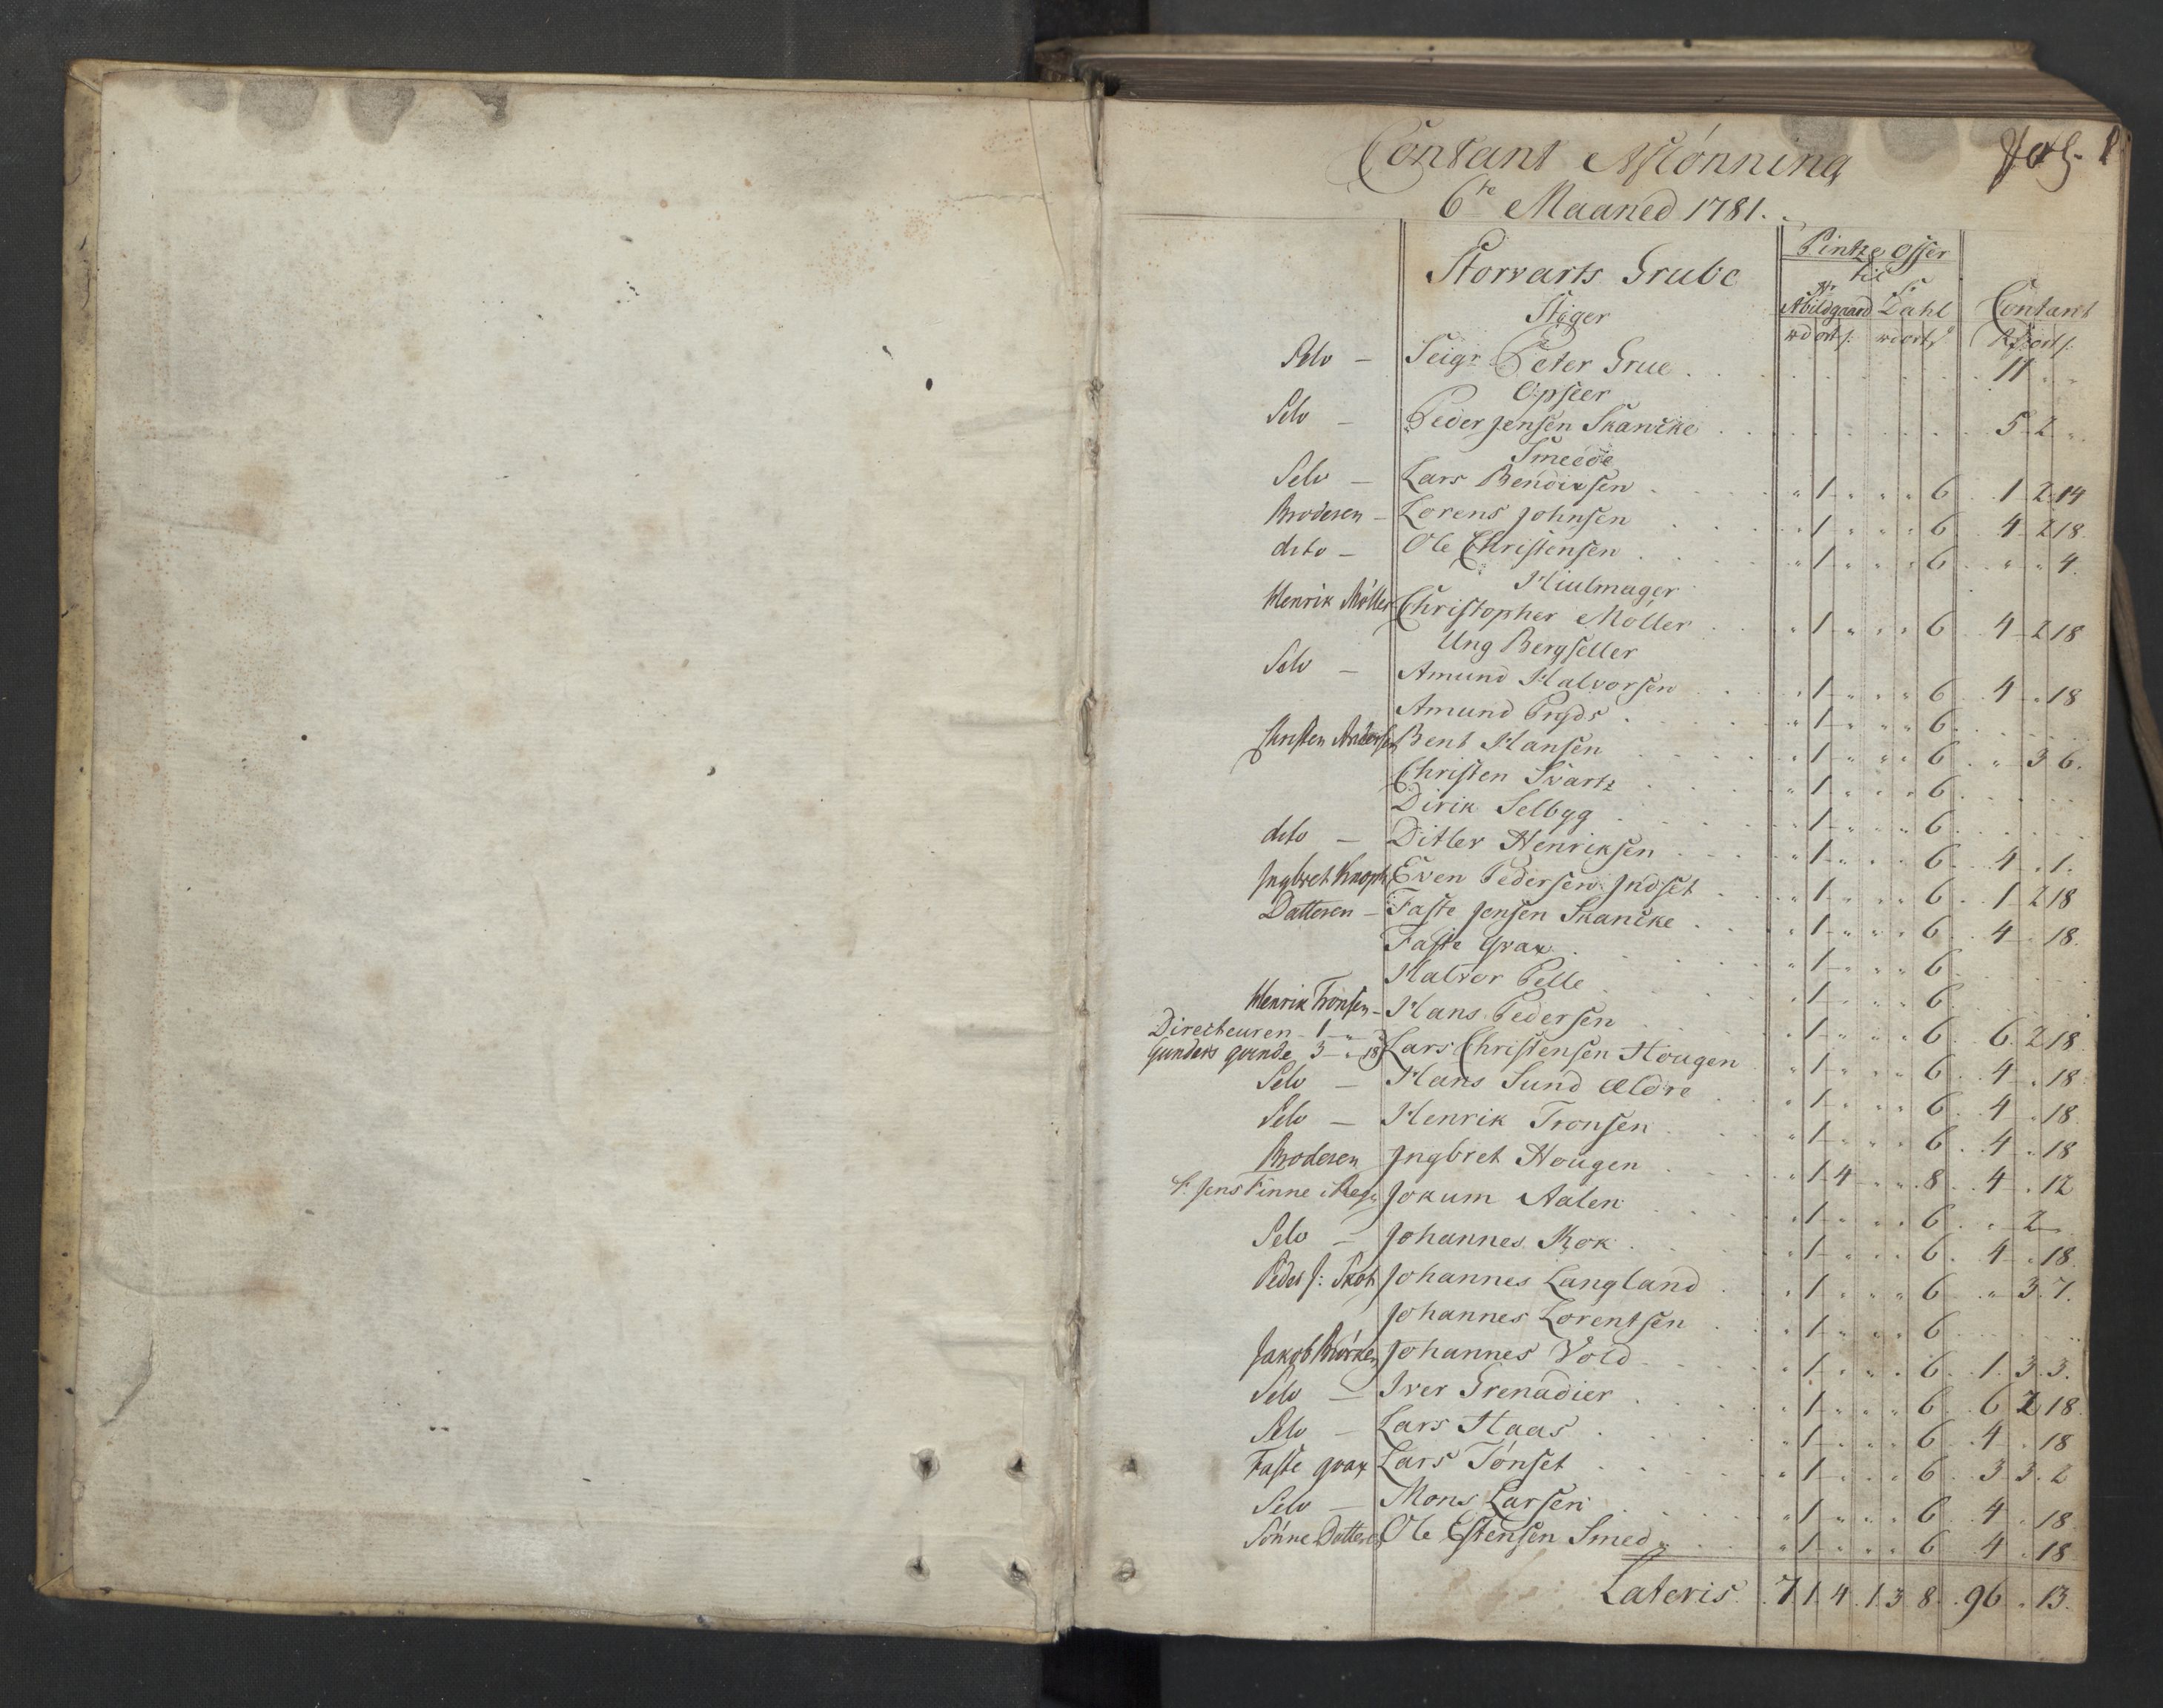 Contant Aflönning
6te Maaned 1781.
Storvarts Grube
Pintze Offer
til
Hr Abildgaard Dahl Contant
Stiger
rd ort s. rd ort s Rd ort s.
Selv — Seigr Peter Grue 11 " "
Opseer
Selv — Peder Jensen Skancke 5 2 "
Smeede
Selv — Lars Bendixsen " 1 " " " 6 1 2 14
Broderen — Lorens Johnsen " 1 " " " 6 4 2 18
dito — Ole Christensen " 1 " " " 6 " " 4
Hiulmager
Henrik Möller Christopher Möller " 1 " " " 6 4 2 18
Ung Bergfeller
Selv — Amund Halvorsen " 1 " " " 6 4 " 18
Amund " 1 " " " 6
Christen Andersen Bent Hansen " 1 " " " 6 " 3 6.
Christen Svartz " 1 " " " 6
Dirik Selbyg " 1 " " " 6
dito — Ditlev Henriksen " 1 " " " 6 4 " 1.
Ingbret Knoph Even Pedersen Indset " 1 " " " 6 1 2 18
Datteren — Faste Jensen Skancke " 1 " " " 6 4 " 18.
Faste Grax " 1 " " " 6
Halvor Pelle " 1 " " " 6
Henrik Tronsen — Hans Pedersen " 1 " " " 6 6 2 18
Directeuren 1 " "
Gunders qvinde 3 " 18 Lars Christensen Hougen " 1 " " " 6 4 " 18
Selv — Hans Sund Ældre " 1 " " " 6 4 " 18
Selv — Henrik Tronsen " 1 " " " 6 4 " 18
Broderen Ingbret Hougen " 1 4 " " 8 4 " 12
S. Jens Finne i Regn Jokum Aalen " 1 " " " 6 " 2
Selv — Johannes Kok " 1 " " " 6 4 " 18.
Peder J: Skot Johannes Langland " 1 " " " 6 " 3 7.
Johannes Lorentsen " 1 " " " 6
Jakob Biörken Johannes Vold " 1 " " " 6 1 3 3.
Selv — Iver Grenadier " 1 " " " 6 6 2 18
Selv — Lars Haas " 1 " " " 6 4 " 18
Faste grax Lars Tönset " 1 " " " 6 3 3 2
Selv — Mons Larsen " 1 " " " 6 4 " 18
Sönne Datteren Ole Estensen Smed " 1 " " " 6 4 " 18
Lateris 7. 1 4 1 3 8 96 " 13.